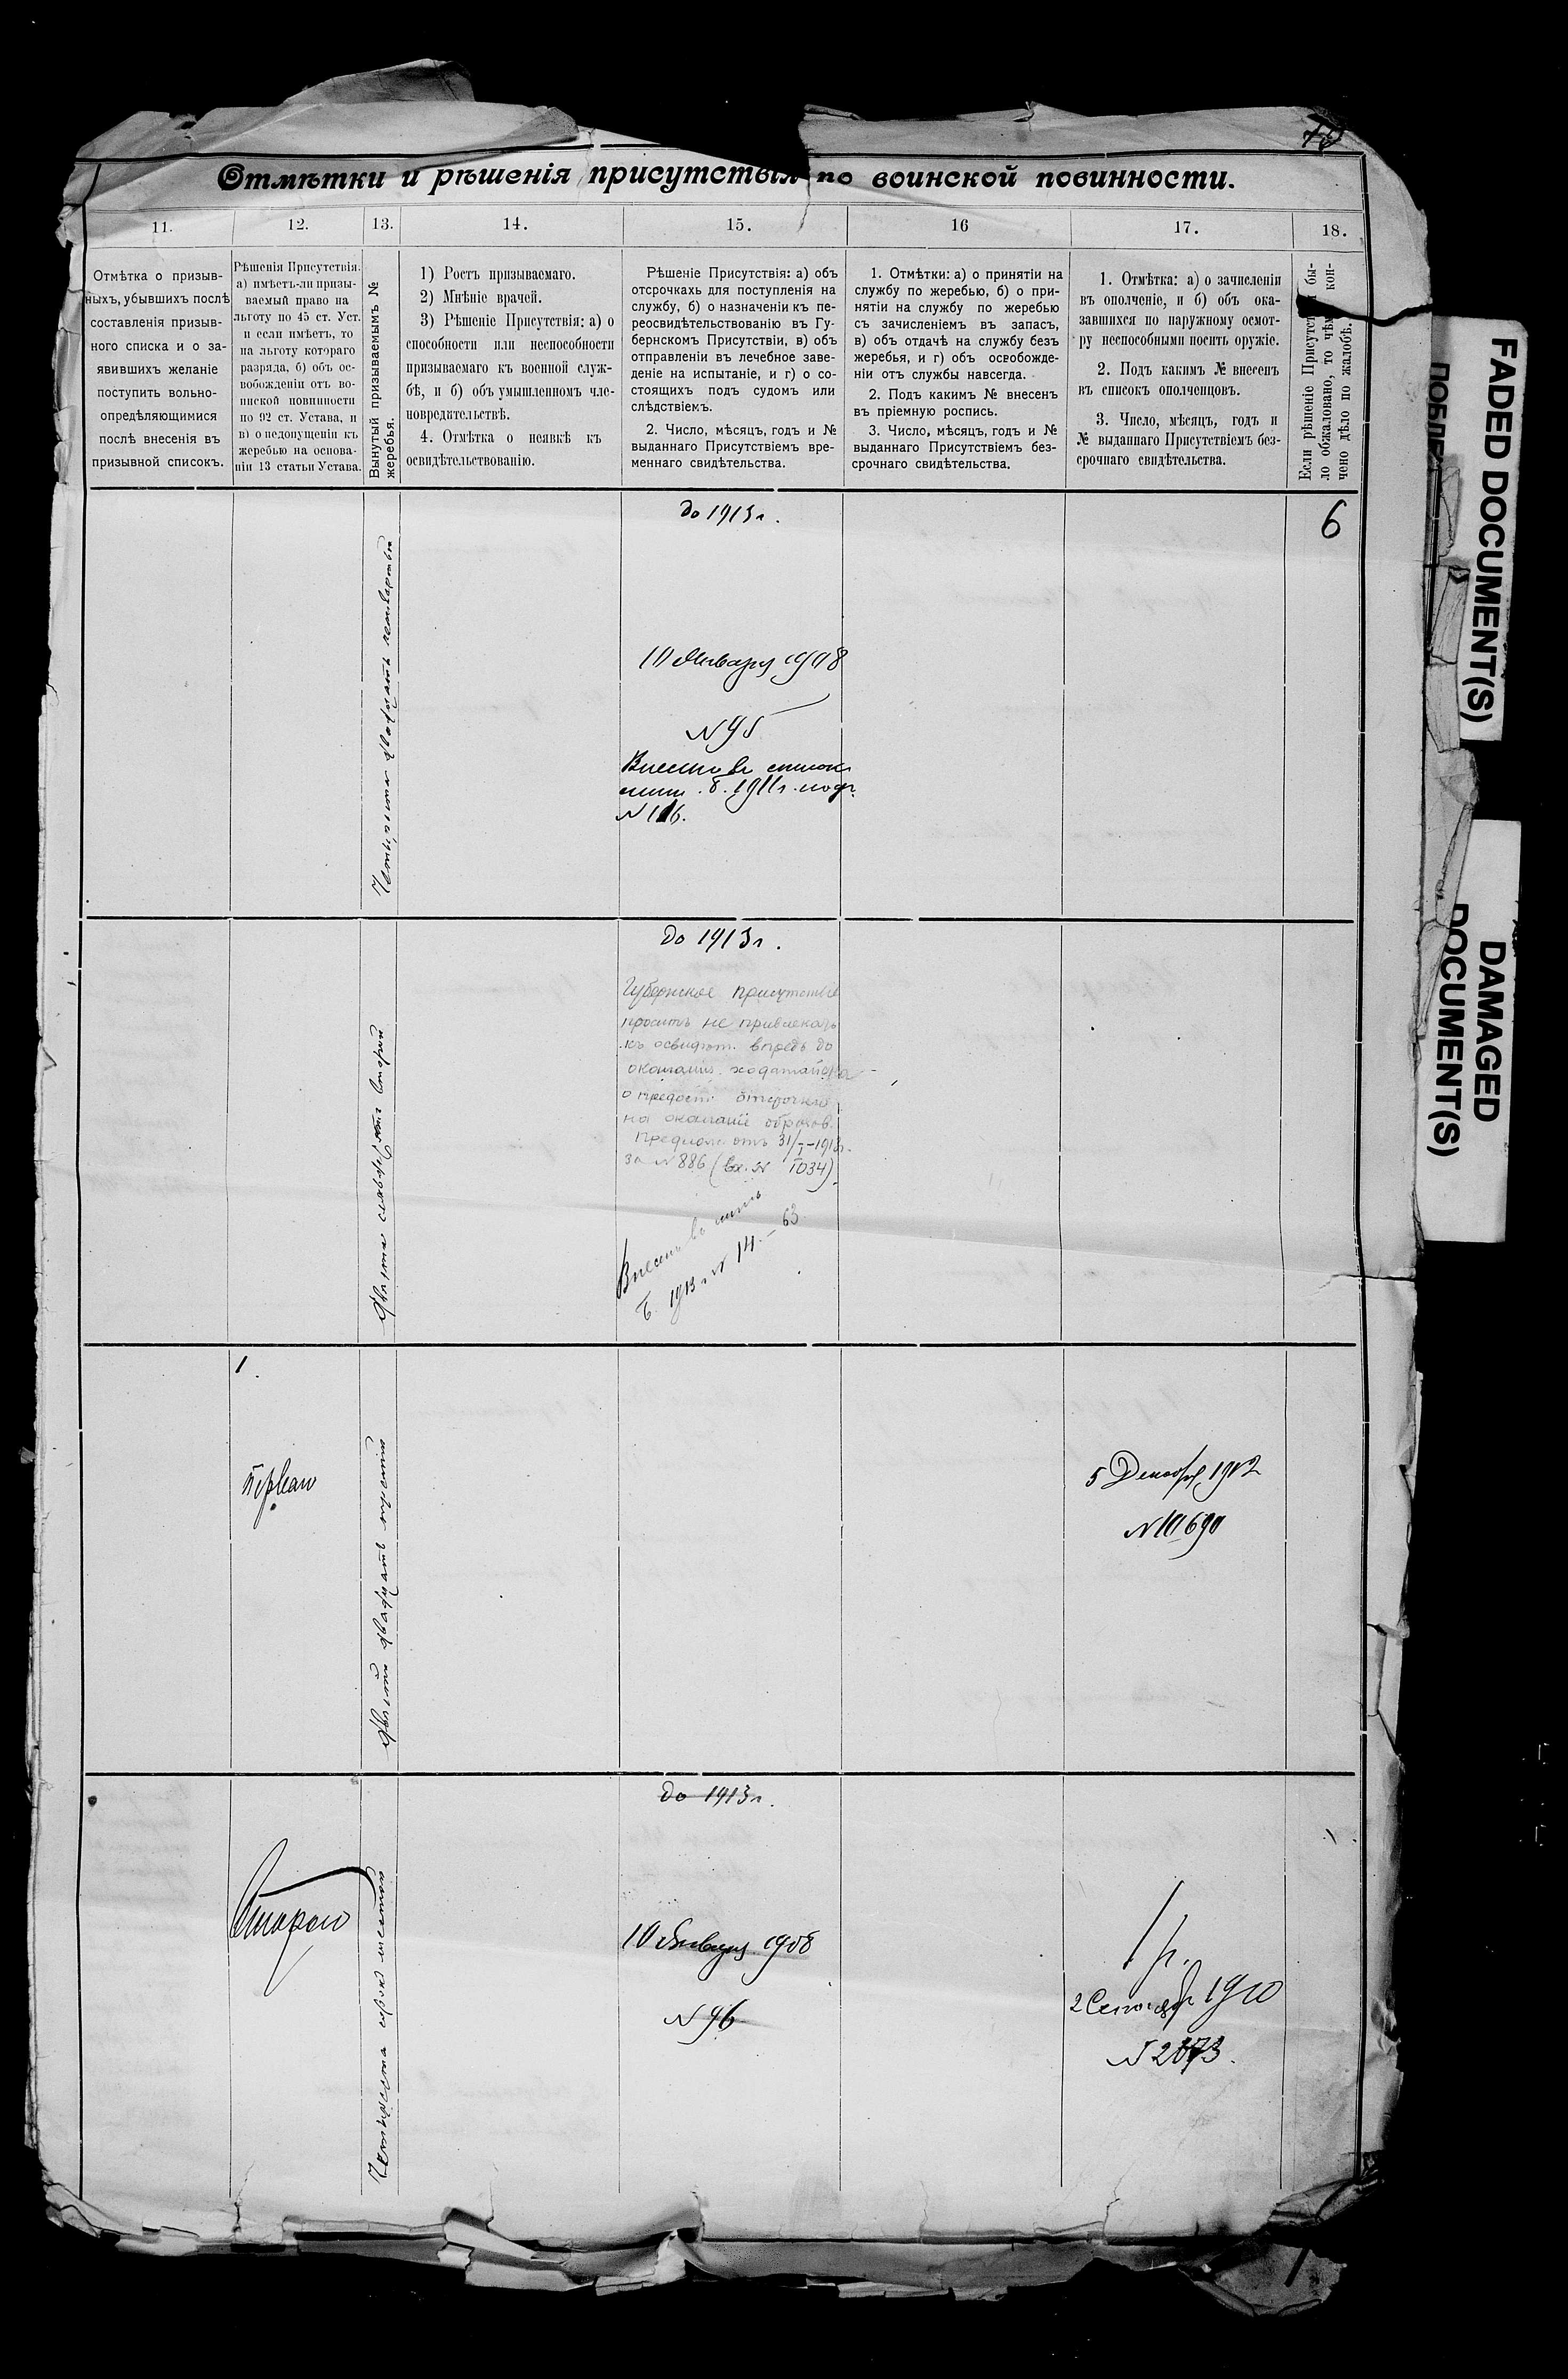 Отмѣтки и рѣшенія присутствія по воинской повинности.
11.
12.
13.
14.
15.
16
17.
18.
Отмѣтка о призыв-
ныхъ, убывшихъ послѣ
составленія призыв-
ного списка и о за-
явившихъ желаніе
поступить вольно-
опредѣляющимися
послѣ внесенія въ
призывной списокъ.
Рѣшенія Присутствія:
а) имѣетъ-ли призы-
ваемый право на
льготу по 45 ст. Уст.
и если имѣетъ, то
на льготу котораго
разряда, б) объ ос-
вобожденіи отъ во-
инской повинности
по 92 ст. Устава, и
в) о недопущеніи къ
жеребью на основа-
ніи 13 статьи Устава.
Вынутый призываемымъ №
жеребья.
1) Ростъ призываемаго.
2) Мнѣніе врачей.
3) Рѣшеніе Присутствія: а) о
способности или неспособности
призываемаго къ военной служ-
бѣ, и б) объ умышленномъ чле-
новредительствѣ.
4. Отмѣтка о неявкѣ къ
освидѣтельствованію.
Рѣшеніе Присутствія: а) объ
отсрочкахъ для поступленія на
службу, б) о назначеніи къ пе-
реосвидѣтельствованію въ Гу-
бернскомъ Присутствіи, в) объ
отправленіи въ лечебное заве-
деніе на испытаніе, и г) о со-
стоящихъ подъ судомъ или
слѣдствіемъ.
2. Число, мѣсяцъ, годъ и №
выданнаго Присутствіемъ вре-
меннаго свидѣтельства.
1. Отмѣтки: а) о принятіи на
службу по жеребью, б) о при-
нятіи на службу по жеребью
съ зачисленіемъ въ запасъ,
в) объ отдачѣ на службу безъ
жеребья, и г) объ освобожде-
ніи отъ службы навсегда.
2. Подъ какимъ № внесенъ
въ пріемную роспись.
3. Число, мѣсяцъ, годъ и №
выданнаго Присутствіемъ без-
срочнаго свидѣтельства.
1. Отмѣтка: а) о зачисленіи
въ ополченіе, и б) объ ока-
завшихся по наружному осмот-
ру неспособными носить оружіе.
2. Подъ какимъ № внесенъ
въ списокъ ополченцовъ.
3. Число, мѣсяцъ, годъ и
№ выданнаго Присутствіемъ без-
срочнаго свидѣтельства.
Если рѣшеніе Присутст бы-
ло обжаловано, то чѣм кон-
чено дѣло по жалобѣ.
до 1913 г.
6
Четыреста двадцать четвертый
10 Января 1908
N 95
Внесенъ въ список
1911 г. под
двѣста семьдесятъ второй
до 1913 г.
Губернское присутствіе
проситъ не привлекать
къ освидѣт. впредь до
окончанія ходатайства
о предост. отсрочки
на окончаніе образов.
Предлож. отъ 31/I-1913г.
за N 886 (вх. N 1034).
Внесенъ въ
1913 г. N 14 - 63
1.
Первая
двѣсти двадцать третій
5 Декабря 1912
N 10690
до 1913 г.
Вторая
Четыреста сорокъ шестой
10 Января 1908
N 96
1 р.
2 Сентября 1910
FADED DOCUMENT(S)
DAMAGED
DOCUMENT(S)